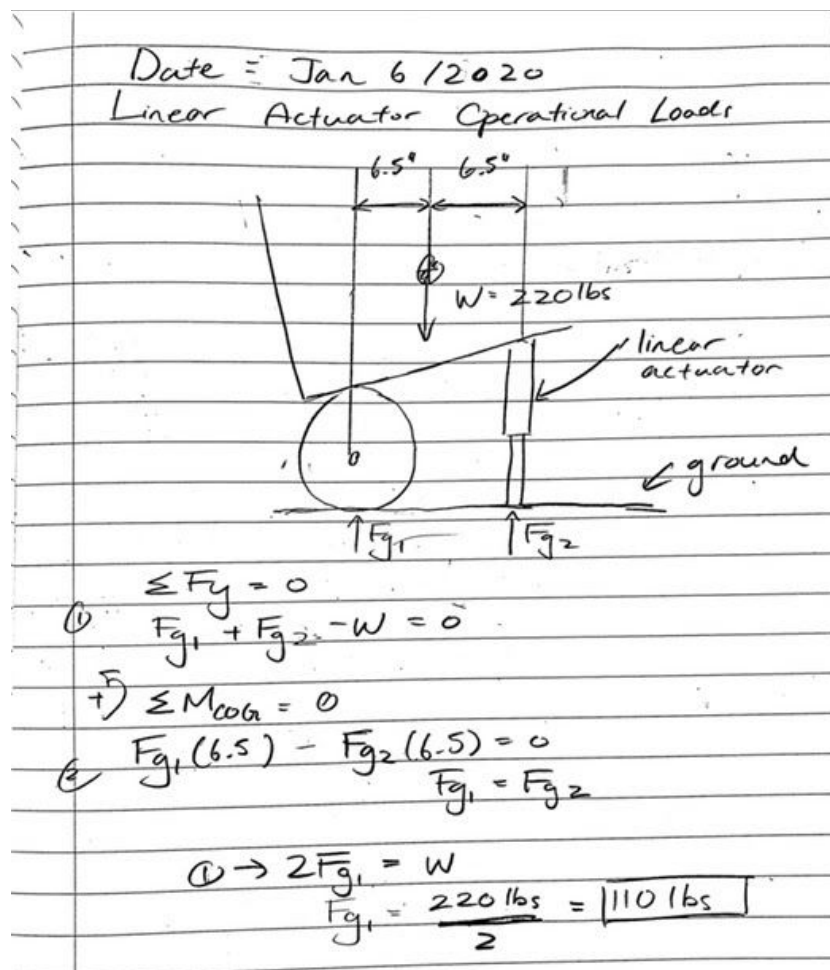 Date = Jan 6 / 2020
Linear Actuator Operational Loads
6.5" 6.5"
W = 220 lbs
linear
actuator
ground
Fg₁ Fg₂
ΣFy = 0
① Fg₁ + Fg₂ - W = 0
+ ΣM_COG = 0
② Fg₁(6.5) - Fg₂(6.5) = 0
Fg₁ = Fg₂
① → 2Fg₁ = W
Fg₁ = 220 lbs / 2 = 110 lbs